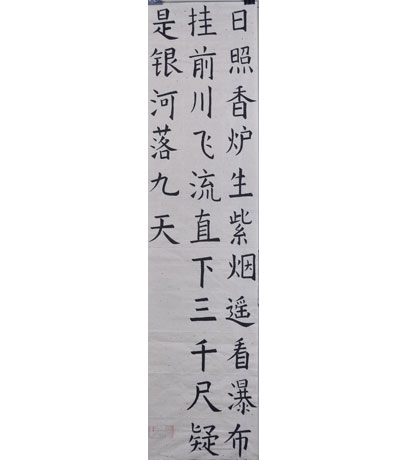 日照香炉生紫烟遥看瀑布
挂前川飞流直下三千尺疑
是银河落九天